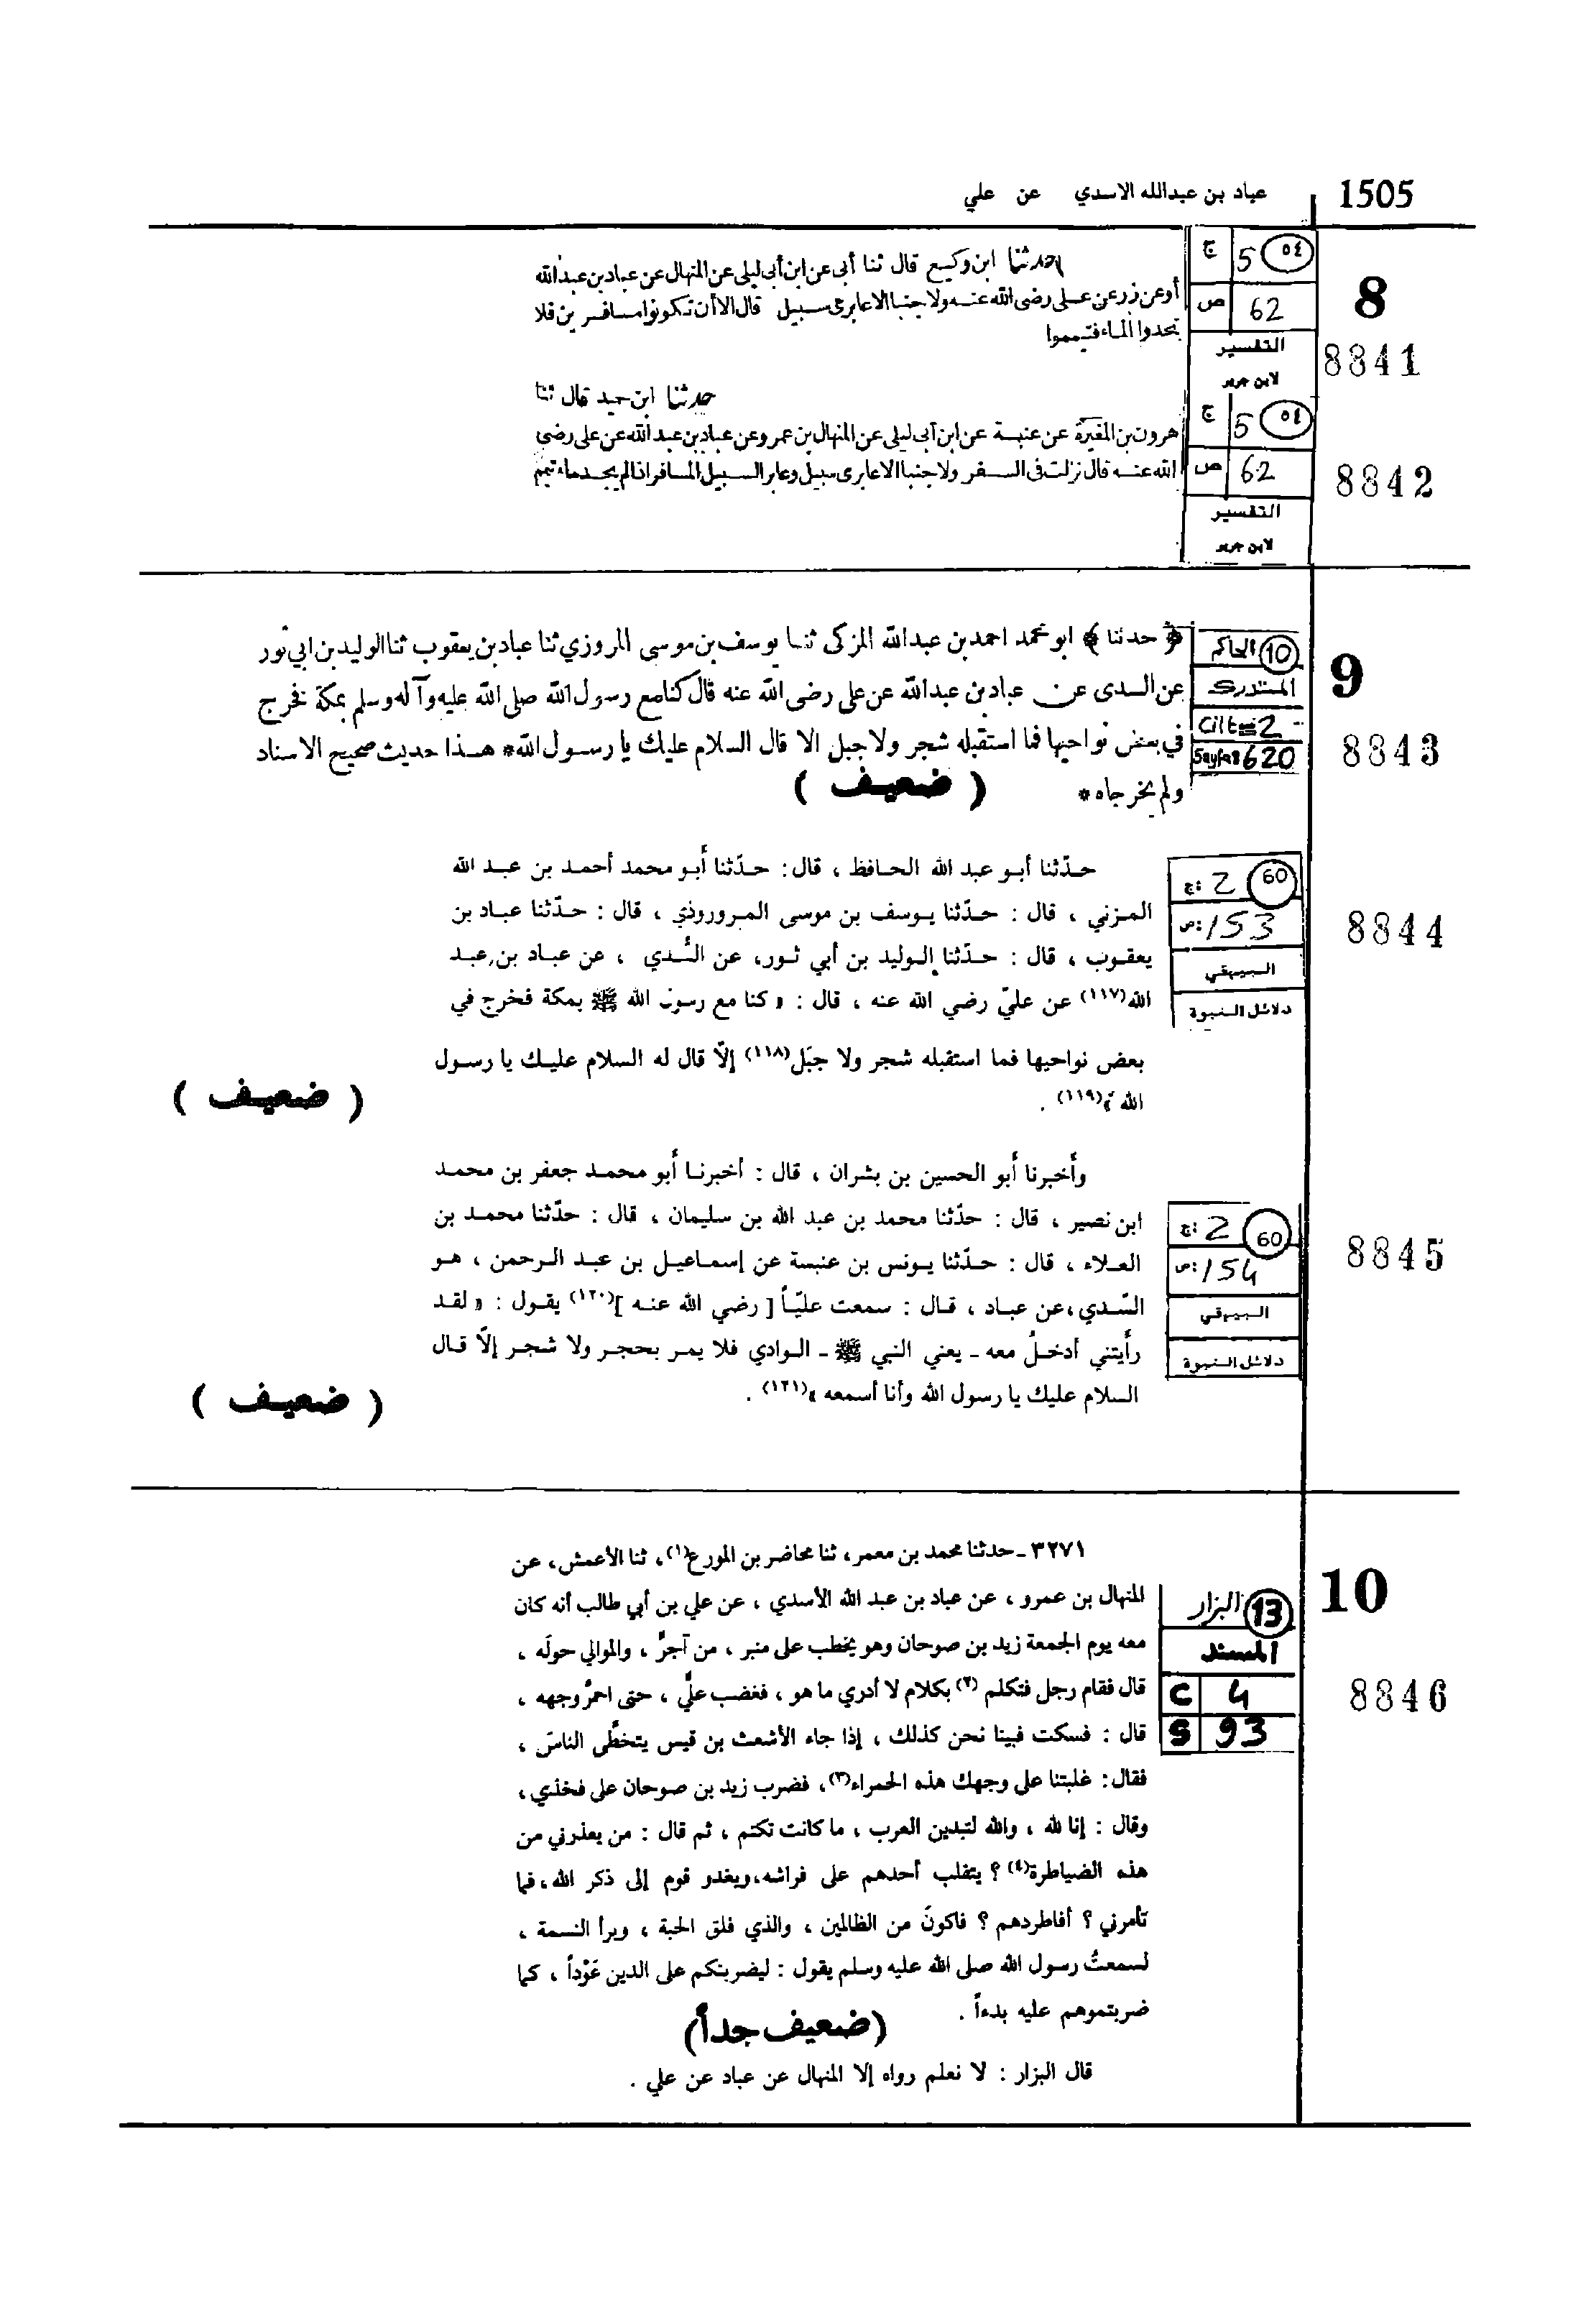 1505 عباد بن عبدالله الاسدي عن علي
8
8841
٥٤ 5 ج
62 ص
التفسير
لابن جرير
حدثنا ابن وكيع قال ثنا أبى عن ابن أبى ليلى عن المنهال عن عباد بن عبدالله
أو عن زر عن على رضى الله عنه ولا جنبا الا عابرى سبيل قال الا أن تكونوا مسافرين فلا
تجدوا الماء فتيمموا
8842
٥٤ 5 ج
62 ص
التفسير
لابن جرير
حدثنا ابن حميد قال ثنا
هرون بن المغيرة عن عنبسة عن ابن أبى ليلى عن المنهال بن عمرو عن عباد بن عبد الله عن على رضى
الله عنه قال نزلت فى السفر ولا جنبا الا عابرى سبيل وعابر السبيل المسافر اذا لم يجد ماء تيمم
9
8843
10 الحاكم
المستدرك
Cilt = 2
Sayfa 8 620
﴿ حدثنا ﴾ ابو محمد احمد بن عبدالله المزكى ثنا يوسف بن موسى المروزي ثنا عباد بن يعقوب ثنا الوليد بن ابي ثور
عن السدى عن عباد بن عبدالله عن على رضى الله عنه قال كنا مع رسول الله صلى الله عليه وآله وسلم بمكة فخرج
في بعض نواحيها فما استقبله شجر ولا جبل الا قال السلام عليك يا رسول الله * هذا حديث صحيح الاسناد
ولم يخرجاه *
( ضعيف )
8844
60 2 ج:
153 ص:
البيهقي
دلائل النبوة
حدّثنا أبو عبد الله الحافظ ، قال: حدّثنا أبو محمد أحمد بن عبد الله
المزني ، قال : حدّثنا يوسف بن موسى المروروذي ، قال : حدّثنا عباد بن
يعقوب ، قال : حدّثنا الوليد بن أبي ثور، عن السُّدي ، عن عباد بن عبد
الله(١١٧) عن عليّ رضي الله عنه ، قال : « كنا مع رسول الله ﷺ بمكة فخرج في
بعض نواحيها فما استقبله شجر ولا جبَل(١١٨) إلّا قال له السلام عليك يا رسول
الله »(١١٩) .
( ضعيف )
8845
60 2 ج:
154 ص:
البيهقي
دلائل النبوة
وأخبرنا أبو الحسين بن بشران ، قال : أخبرنا أبو محمد جعفر بن محمد
ابن نصير ، قال : حدّثنا محمد بن عبد الله بن سليمان ، قال : حدّثنا محمد بن
العلاء ، قال : حدّثنا يونس بن عنبسة عن إسماعيل بن عبد الرحمن ، هو
السّدي،عن عباد ، قال : سمعت عليّاً [ رضي الله عنه ](١٢٠) يقول : « لقد
رأيتني أدخلُ معه ـ يعني النبي ﷺ ـ الوادي فلا يمر بحجر ولا شجر إلّا قال
السلام عليك يا رسول الله وأنا أسمعه »(١٢١) .
( ضعيف )
10
8846
13 البزار
المسند
C 4
S 93
٣٢٧١ ـ حدثنا محمد بن معمر، ثنا محاضر بن المورع(١)، ثنا الأعمش، عن
المنهال بن عمرو ، عن عباد بن عبد الله الأسدي ، عن علي بن أبي طالب أنه كان
معه يوم الجمعة زيد بن صوحان وهو يخطب على منبر ، من آجرٍّ ، والموالي حولَه ،
قال فقام رجل فتكلم (٢) بكلام لا أدري ما هو ، فغضب عليٌّ ، حتى احمرَّ وجهه ،
قال : فسكت فبينا نحن كذلك ، إذا جاء الأشعث بن قيس يتخطَّى الناسَ ،
فقال: غلبتنا على وجهك هذه الحمراء(٣)، فضرب زيد بن صوحان على فخذي ،
وقال : إنا لله ، والله لتبدين العرب ، ما كانت تكتم ، ثم قال : من يعذرني من
هذه الضياطرة(٤) ؟ يتقلب أحدهم على فراشه،ويغدو قوم إلى ذكر الله، فما
تأمرني ؟ أفاطردهم ؟ فاكونَ من الظالمين ، والذي فلق الحبة ، وبرأ النسمة ،
لسمعتُ رسول الله صلى الله عليه وسلم يقول : ليضربنكم على الدين عَوْداً ، كما
ضربتموهم عليه بدءاً .
(ضعيف جداً)
قال البزار : لا نعلم رواه إلا المنهال عن عباد عن علي .